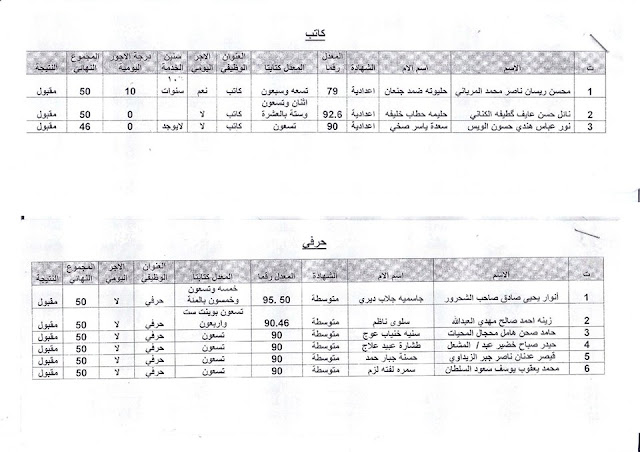 كاتب
ت الاسم اسم الام الشهادة المعدل رقما المعدل كتابتا العنوان الوظيفي الاجر اليومي سنين الخدمة درجة الاجور اليومية المجموع النهائي النتيجة
1 محسن ريسان ناصر محمد المرياني حليوته ضمد جنعان اعدادية 79 تسعه وسبعون كاتب نعم ١٠ سنوات 10 50 مقبول
2 نائل حسن عايف گطيفه الكناني حليمه حطاب خليفه اعدادية 92.6 اثنان وتسعون وستة بالعشرة كاتب لا 0 50 مقبول
3 نور عباس هندي حسون الويس سعدة ياسر صخي اعدادية 90 تسعون كاتب لا لايوجد 0 46 مقبول
حرفي
ت الاسم اسم الام الشهادة المعدل رقما المعدل كتابتا العنوان الوظيفي الاجر اليومي المجموع النهائي النتيجة
1 أنوار يحيى صادق صاحب الشحرور جاسميه جلاب ديري متوسطة 95. 50 خمسه وتسعون وخمسون بالمئة حرفي لا 50 مقبول
2 زينه احمد صالح مهدي العبدالله سلوى ناظم متوسطة 90.46 تسعون بوينت ست واربعون حرفي لا 50 مقبول
3 حامد صحن هامل محجال المحيات سنيه خنياب عوج متوسطة 90 تسعون حرفي لا 50 مقبول
4 حيدر صباح خضير عبد / المشعل طشارة عبيد علاج متوسطة 90 تسعون حرفي لا 50 مقبول
5 قيصر عدنان ناصر جبر الزيداوي حسنة جبار حمد متوسطة 90 تسعون حرفي لا 50 مقبول
6 محمد يعقوب يوسف سعود السلطان سمره لفته لزم متوسطة 90 تسعون حرفي لا 50 مقبول